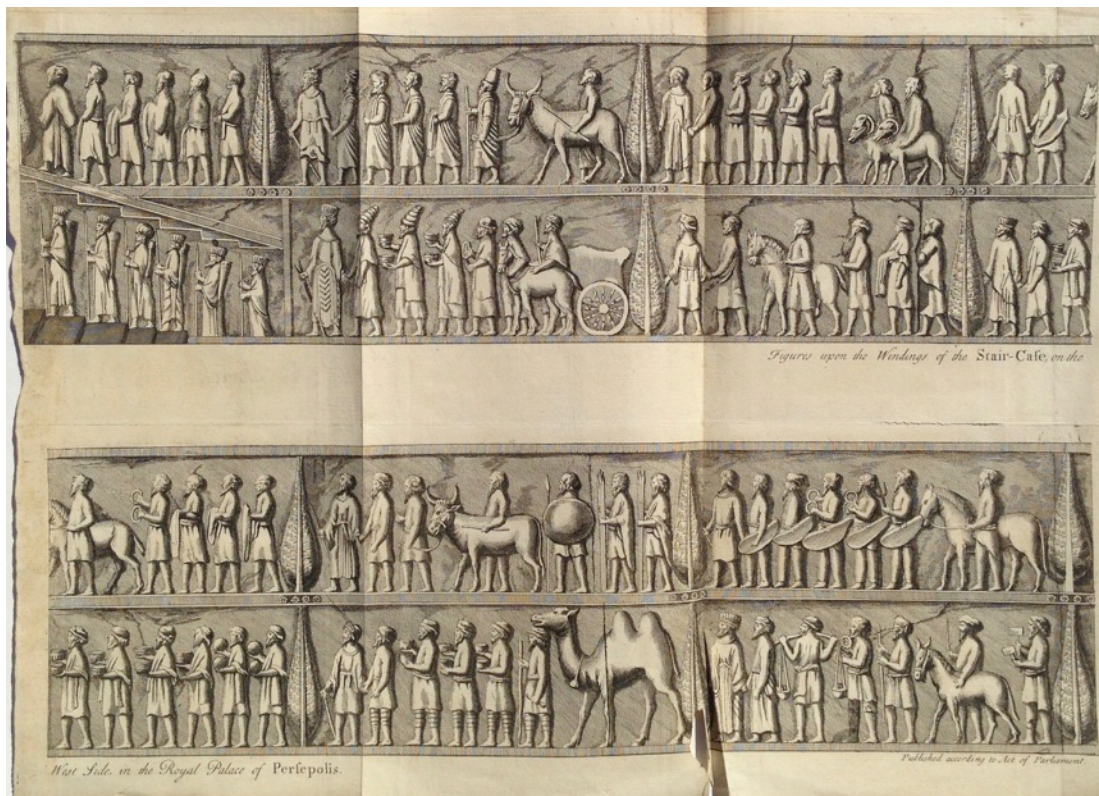 Figures upon the Windings of the Stair-Caſe, on the
West Side, in the Royal Palace of Perſepolis.
Published according to Act of Parliament.